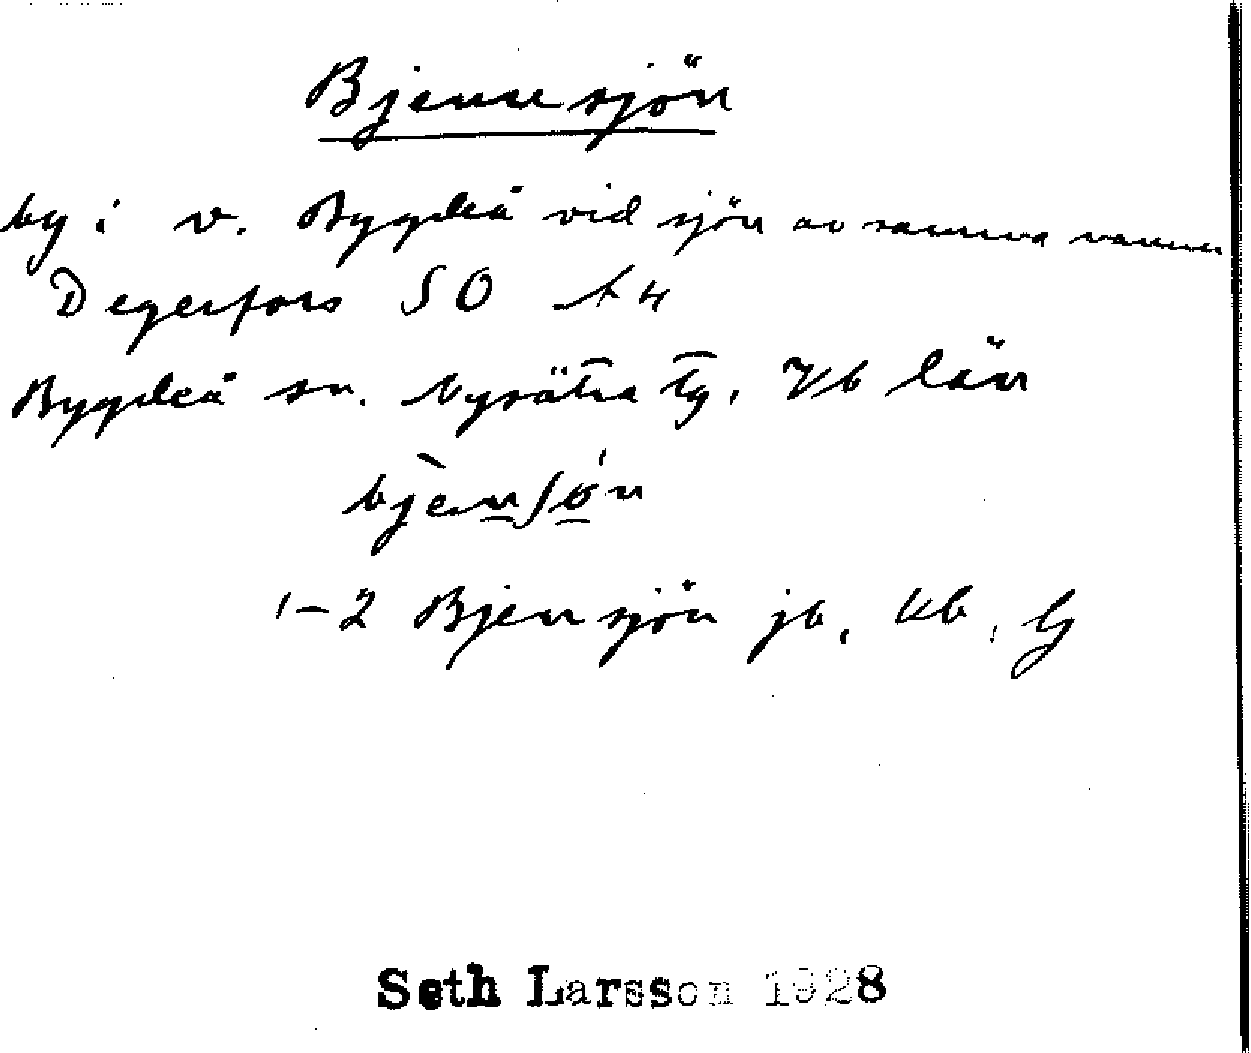 Bjennsjön
by i v. Bygdeå vid sjön av samma namn
Degerfors SO
Bygdeå sn. Nysätra tg. Vb län
1–2 Bjensjön jb, kb, Lj
Seth Larsson 1928